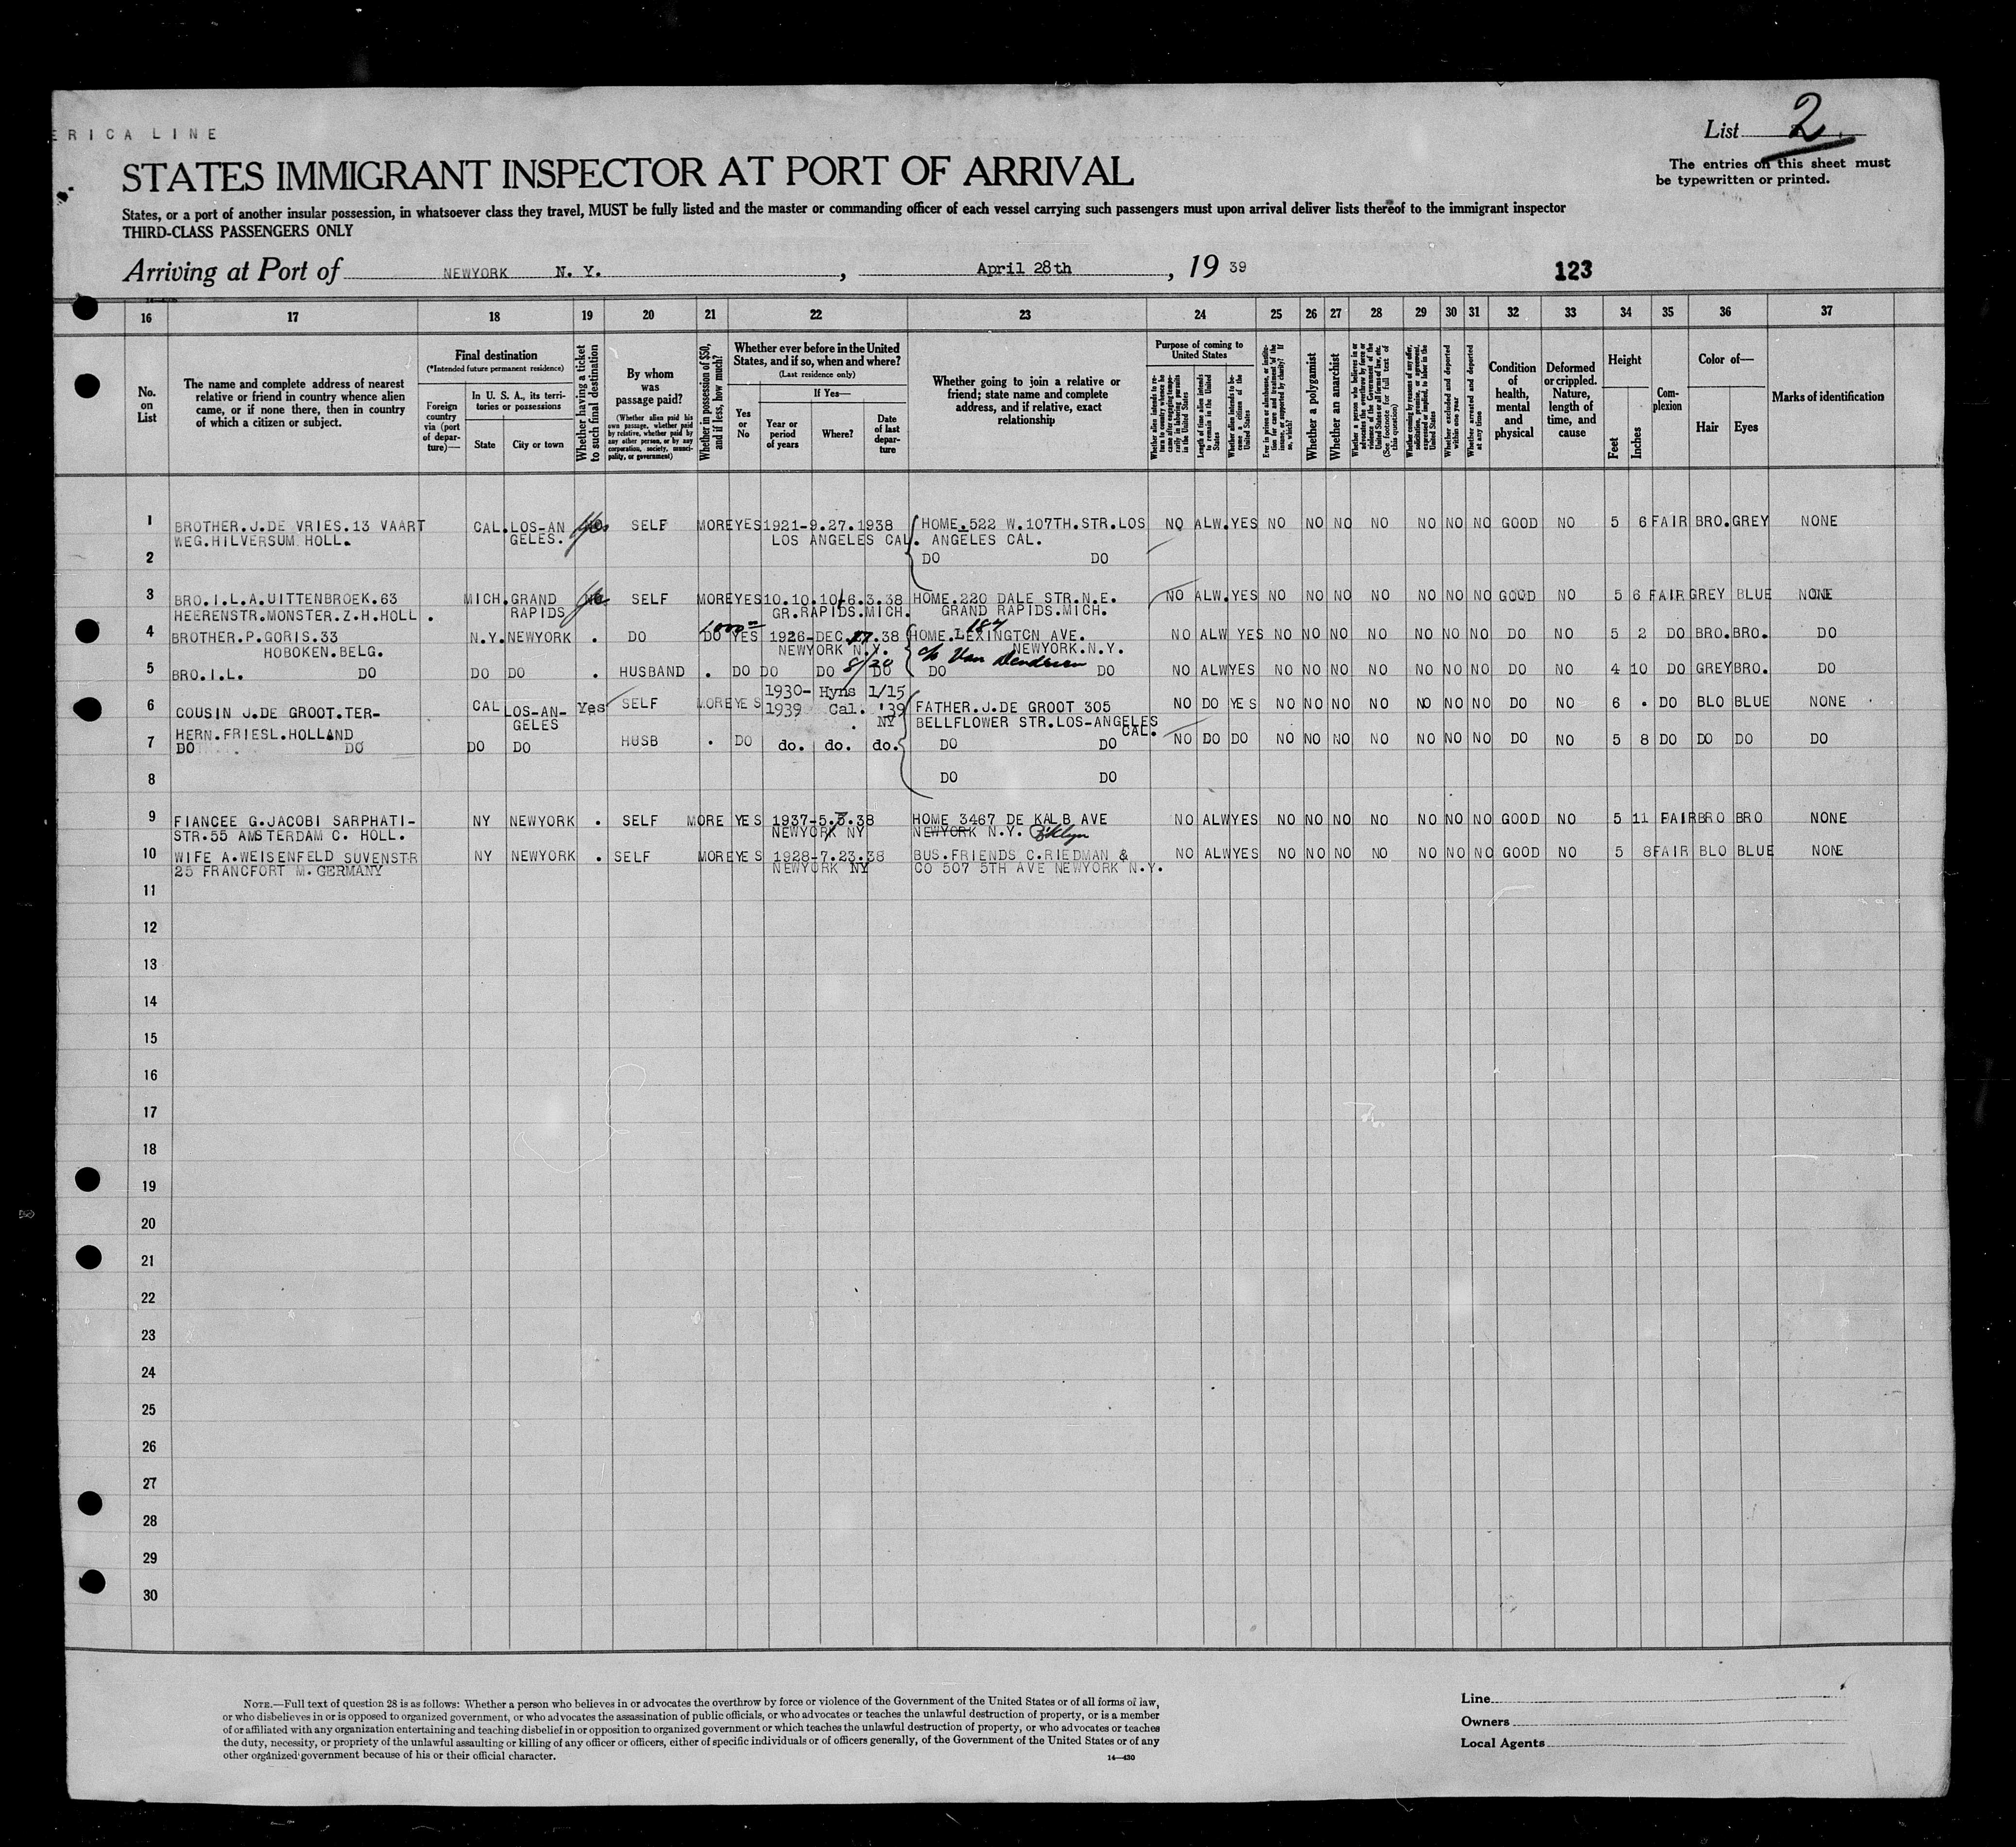 ERICA LINE
List 2
STATES IMMIGRANT INSPECTOR AT PORT OF ARRIVAL
The entries on this sheet must
be typewritten or printed.
States, or a port of another insular possession, in whatsoever class they travel, MUST be fully listed and the master or commanding officer of each vessel carrying such passengers must upon arrival deliver lists thereof to the immigrant inspector
THIRD-CLASS PASSENGERS ONLY
Arriving at Port of NEWYORK N. Y. , April 28th , 19 39
123
16 17 18 19 20 21 22 23 24 25 26 27 28 29 30 31 32 33 34 35 36 37
No.
on
List
The name and complete address of nearest
relative or friend in country whence alien
came, or if none there, then in country
of which a citizen or subject.
Final destination
(*Intended future permanent residence)
Foreign
country
via (port
of depar-
ture)—
In U. S. A., its terri-
tories or possessions
State
City or town
Whether having a ticket
to such final destination
By whom
was
passage paid?
(Whether alien paid his
own passage, whether paid
by relative, whether paid by
any other person, or by any
corporation, society, munici-
pality, or government)
Whether in possession of $50,
and if less, how much?
Whether ever before in the United
States, and if so, when and where?
(Last residence only)
Yes
or
No
If Yes—
Year or
period
of years
Where?
Date
of last
depar-
ture
Whether going to join a relative or
friend; state name and complete
address, and if relative, exact
relationship
Purpose of coming to
United States
Whether alien intends to re-
turn to country whence he
came after engaging tempo-
rarily in laboring pursuits
in the United States
Length of time alien intends
to remain in the United
States
Whether alien intends to be-
come a citizen of the
United States
Ever in prison or almshouse, or institu-
tion for care and treatment of the
insane, or supported by charity? If
so, which?
Whether a polygamist
Whether an anarchist
Whether a person who believes in or
advocates the overthrow by force or
violence of the Government of the
United States or all forms of law, etc.
(See footnote for full text of
this question)
Whether coming by reasons of any offer,
solicitation, promise, or agreement,
expressed or implied, to labor in the
United States
Whether excluded and deported
within one year
Whether arrested and deported
at any time
Condition
of
health,
mental
and
physical
Deformed
or crippled.
Nature,
length of
time, and
cause
Height
Feet
Inches
Com-
plexion
Color of—
Hair
Eyes
Marks of identification
1 BROTHER.J.DE VRIES.13 VAART CAL. LOS-AN Yes SELF MORE YES 1921-9.27.1938 HOME.522 W.107TH.STR.LOS NO ALW. YES NO NO NO NO NO NO NO GOOD NO 5 6 FAIR BRO. GREY NONE
WEG.HILVERSUM HOLL. GELES. LOS ANGELES CAL. ANGELES CAL.
2 DO DO
3 BRO.I.L.A.UITTENBROEK.63 MICH. GRAND SELF MORE YES 10.10.10/6.3.38 HOME.220 DALE STR.N.E. NO ALW. YES NO NO NO NO NO NO NO GOOD NO 5 6 FAIR GREY BLUE NONE
HEERENSTR.MONSTER.Z.H.HOLL . RAPIDS GR.RAPIDS.MICH. GRAND RAPIDS.MICH.
1000 184
4 BROTHER.P.GORIS.33 N.Y. NEWYORK . DO DO YES 1926-DEC. 17.38 HOME.LEXINGTON AVE. NO ALW YES NO NO NO NO NO NO NO DO NO 5 2 DO BRO. BRO. DO
HOBOKEN.BELG. NEWYORK N.Y. NEWYORK.N.Y.
8/20 c/o Van
5 BRO.I.L. DO DO DO . HUSBAND . DO DO DO DO DO DO NO ALW YES NO NO NO NO NO NO NO DO NO 4 10 DO GREY BRO. DO
1930- Hyns 1/15
6 COUSIN J.DE GROOT.TER- CAL LOS-AN- Yes SELF MORE YES 1939 Cal. '39 FATHER.J.DE GROOT 305 NO DO YES NO NO NO NO NO NO NO DO NO 6 . DO BLO BLUE NONE
GELES NY BELLFLOWER STR.LOS-ANGELES
HERN.FRIESL.HOLLAND CAL.
7 DO DO DO DO HUSB . DO do. do. do. DO DO NO DO DO NO NO NO NO NO NO NO DO NO 5 8 DO DO DO DO
8 DO DO
9 FIANCEE G.JACOBI SARPHATI- NY NEWYORK . SELF MORE YES 1937-5.5.38 HOME 3467 DE KALB AVE NO ALW YES NO NO NO NO NO NO NO GOOD NO 5 11 FAIR BRO BRO NONE
STR.55 AMSTERDAM C. HOLL. NEWYORK NY NEWYORK N.Y. B'klyn
10 WIFE A.WEISENFELD SUVENSTR NY NEWYORK . SELF MORE YES 1928-7.23.38 BUS.FRIENDS C.RIEDMAN & NO ALW YES NO NO NO NO NO NO NO GOOD NO 5 8 FAIR BLO BLUE NONE
25 FRANCFORT M.GERMANY NEWYORK NY CO 507 5TH AVE NEWYORK N.Y.
11
12
13
14
15
16
17
18
19
20
21
22
23
24
25
26
27
28
29
30
NOTE.—Full text of question 28 is as follows: Whether a person who believes in or advocates the overthrow by force or violence of the Government of the United States or of all forms of law,
or who disbelieves in or is opposed to organized government, or who advocates the assassination of public officials, or who advocates or teaches the unlawful destruction of property, or is a member
of or affiliated with any organization entertaining and teaching disbelief in or opposition to organized government or which teaches the unlawful destruction of property, or who advocates or teaches
the duty, necessity, or propriety of the unlawful assaulting or killing of any officer or officers, either of specific individuals or of officers generally, of the Government of the United States or of any
other organized government because of his or their official character.
14—430
Line
Owners
Local Agents